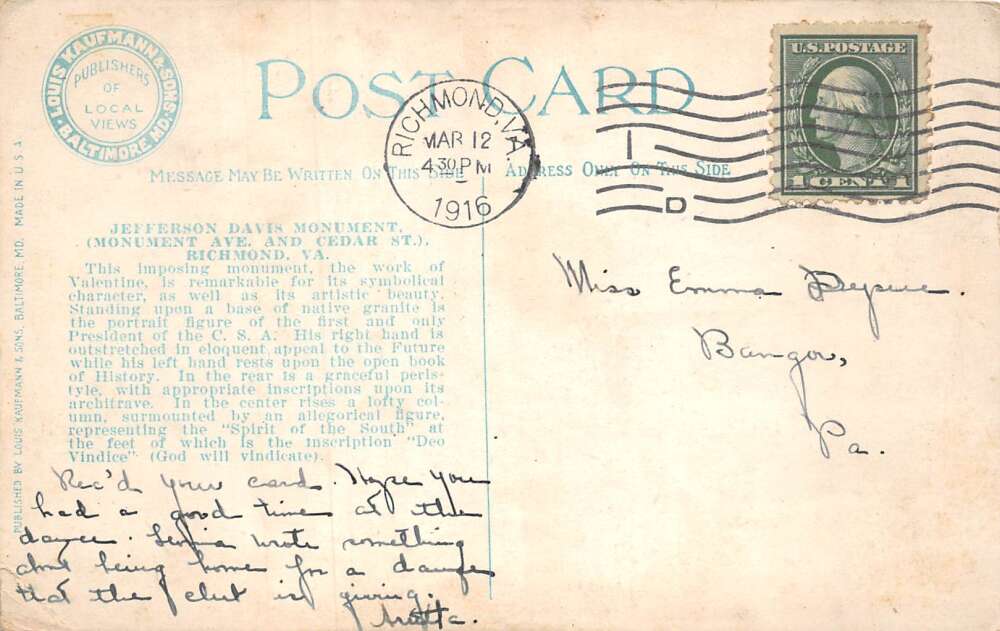 LOUIS KAUFMANN & SONS. BALTIMORE MD.
PUBLISHERS
OF
LOCAL
VIEWS
POST CARD
RICHMOND, VA.
MAR 12
4 30 PM
1916
U.S. POSTAGE
1 CENT 1
D
MESSAGE MAY BE WRITTEN ON THIS SIDE
ADDRESS ONLY ON THIS SIDE
PUBLISHED BY LOUIS KAUFMANN & SONS, BALTIMORE, MD. MADE IN U.S.A
JEFFERSON DAVIS MONUMENT,
(MONUMENT AVE. AND CEDAR ST.),
RICHMOND, VA.
This imposing monument, the work of
Valentine, is remarkable for its symbolical
character, as well as its artistic beauty.
Standing upon a base of native granite is
the portrait figure of the first and only
President of the C. S. A. His right hand is
outstretched in eloquent appeal to the Future
while his left hand rests upon the open book
of History. In the rear is a graceful peris-
tyle, with appropriate inscriptions upon its
architrave. In the center rises a lofty col-
umn, surmounted by an allegorical figure,
representing the "Spirit of the South" at
the feet of which is the inscription "Deo
Vindice" (God will vindicate).
Rec'd your card. Hope you
had a good time at the
dance. wrote something
about being home for a dance
that the club is giving.
Miss Emma
Bangor,
Pa.